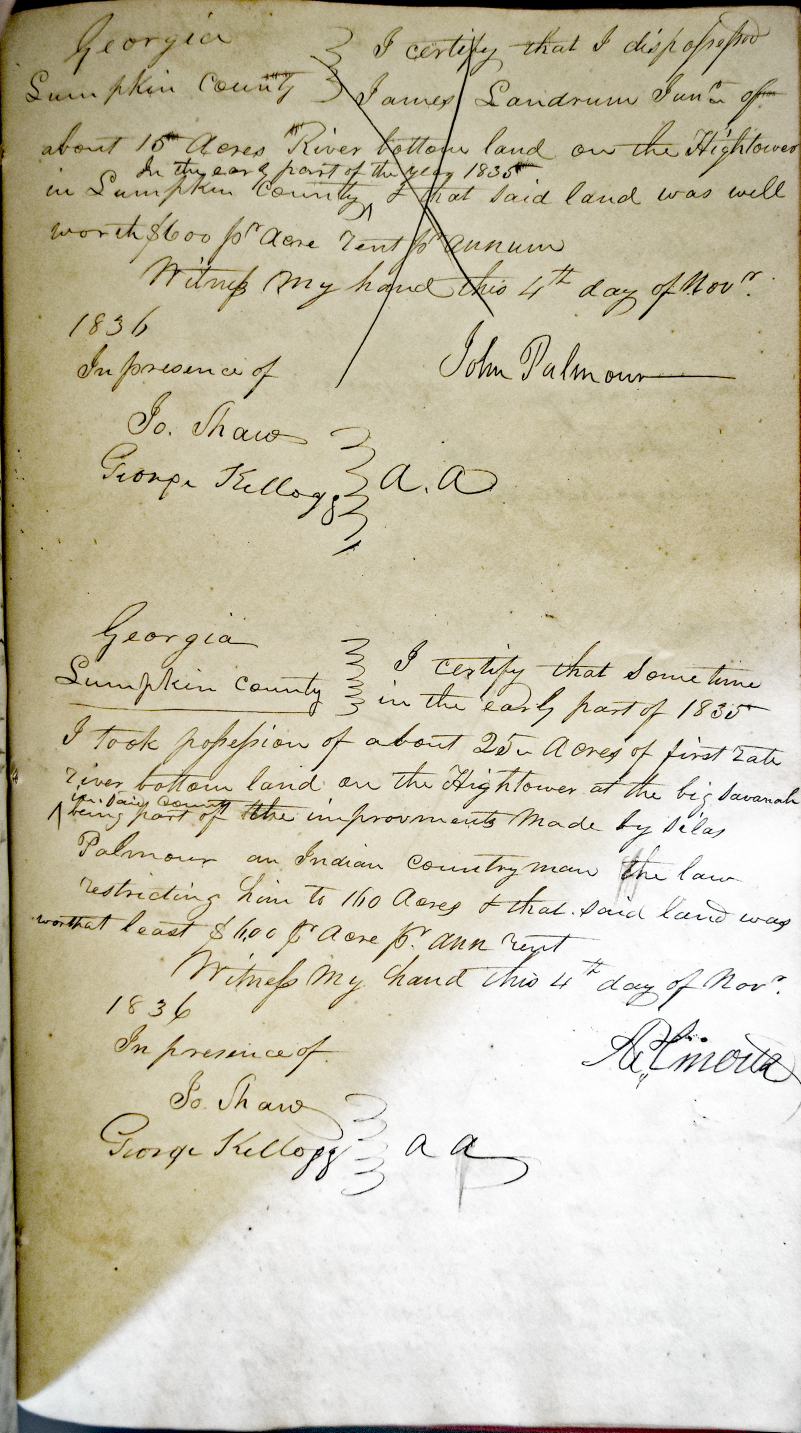 Georgia
Lumpkin County } I certify that I dispossessed
James Landrum Junr. of
about 15 Acres River bottom land on the Hightower
In the early part of the year 1835
in Lumpkin County ^ & that said land was well
worth $6.00 pr Acre rent pr annum
Witness my hand this 4th day of Novr.
1836
In presence of John Palmour
Jo. Shaw
George Kellogg } a. a
Georgia
Lumpkin County } I certify that some time
in the early part of 1835
I took possession of about 25 Acres of first rate
river bottom land on the Hightower at the big Savanah
in said county
^ being part of the improvments made by Silas
Palmour an Indian countryman the law
restricting him to 160 Acres & that said land was
worth at least $6.00 pr Acre pr. ann rent
Witness my hand this 4th day of Novr.
1836
In presence of
Jo Shaw
George Kellogg } a a